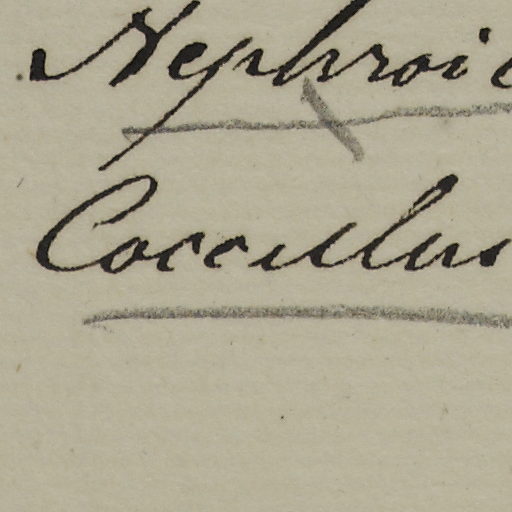 Nephroic
Cocculus